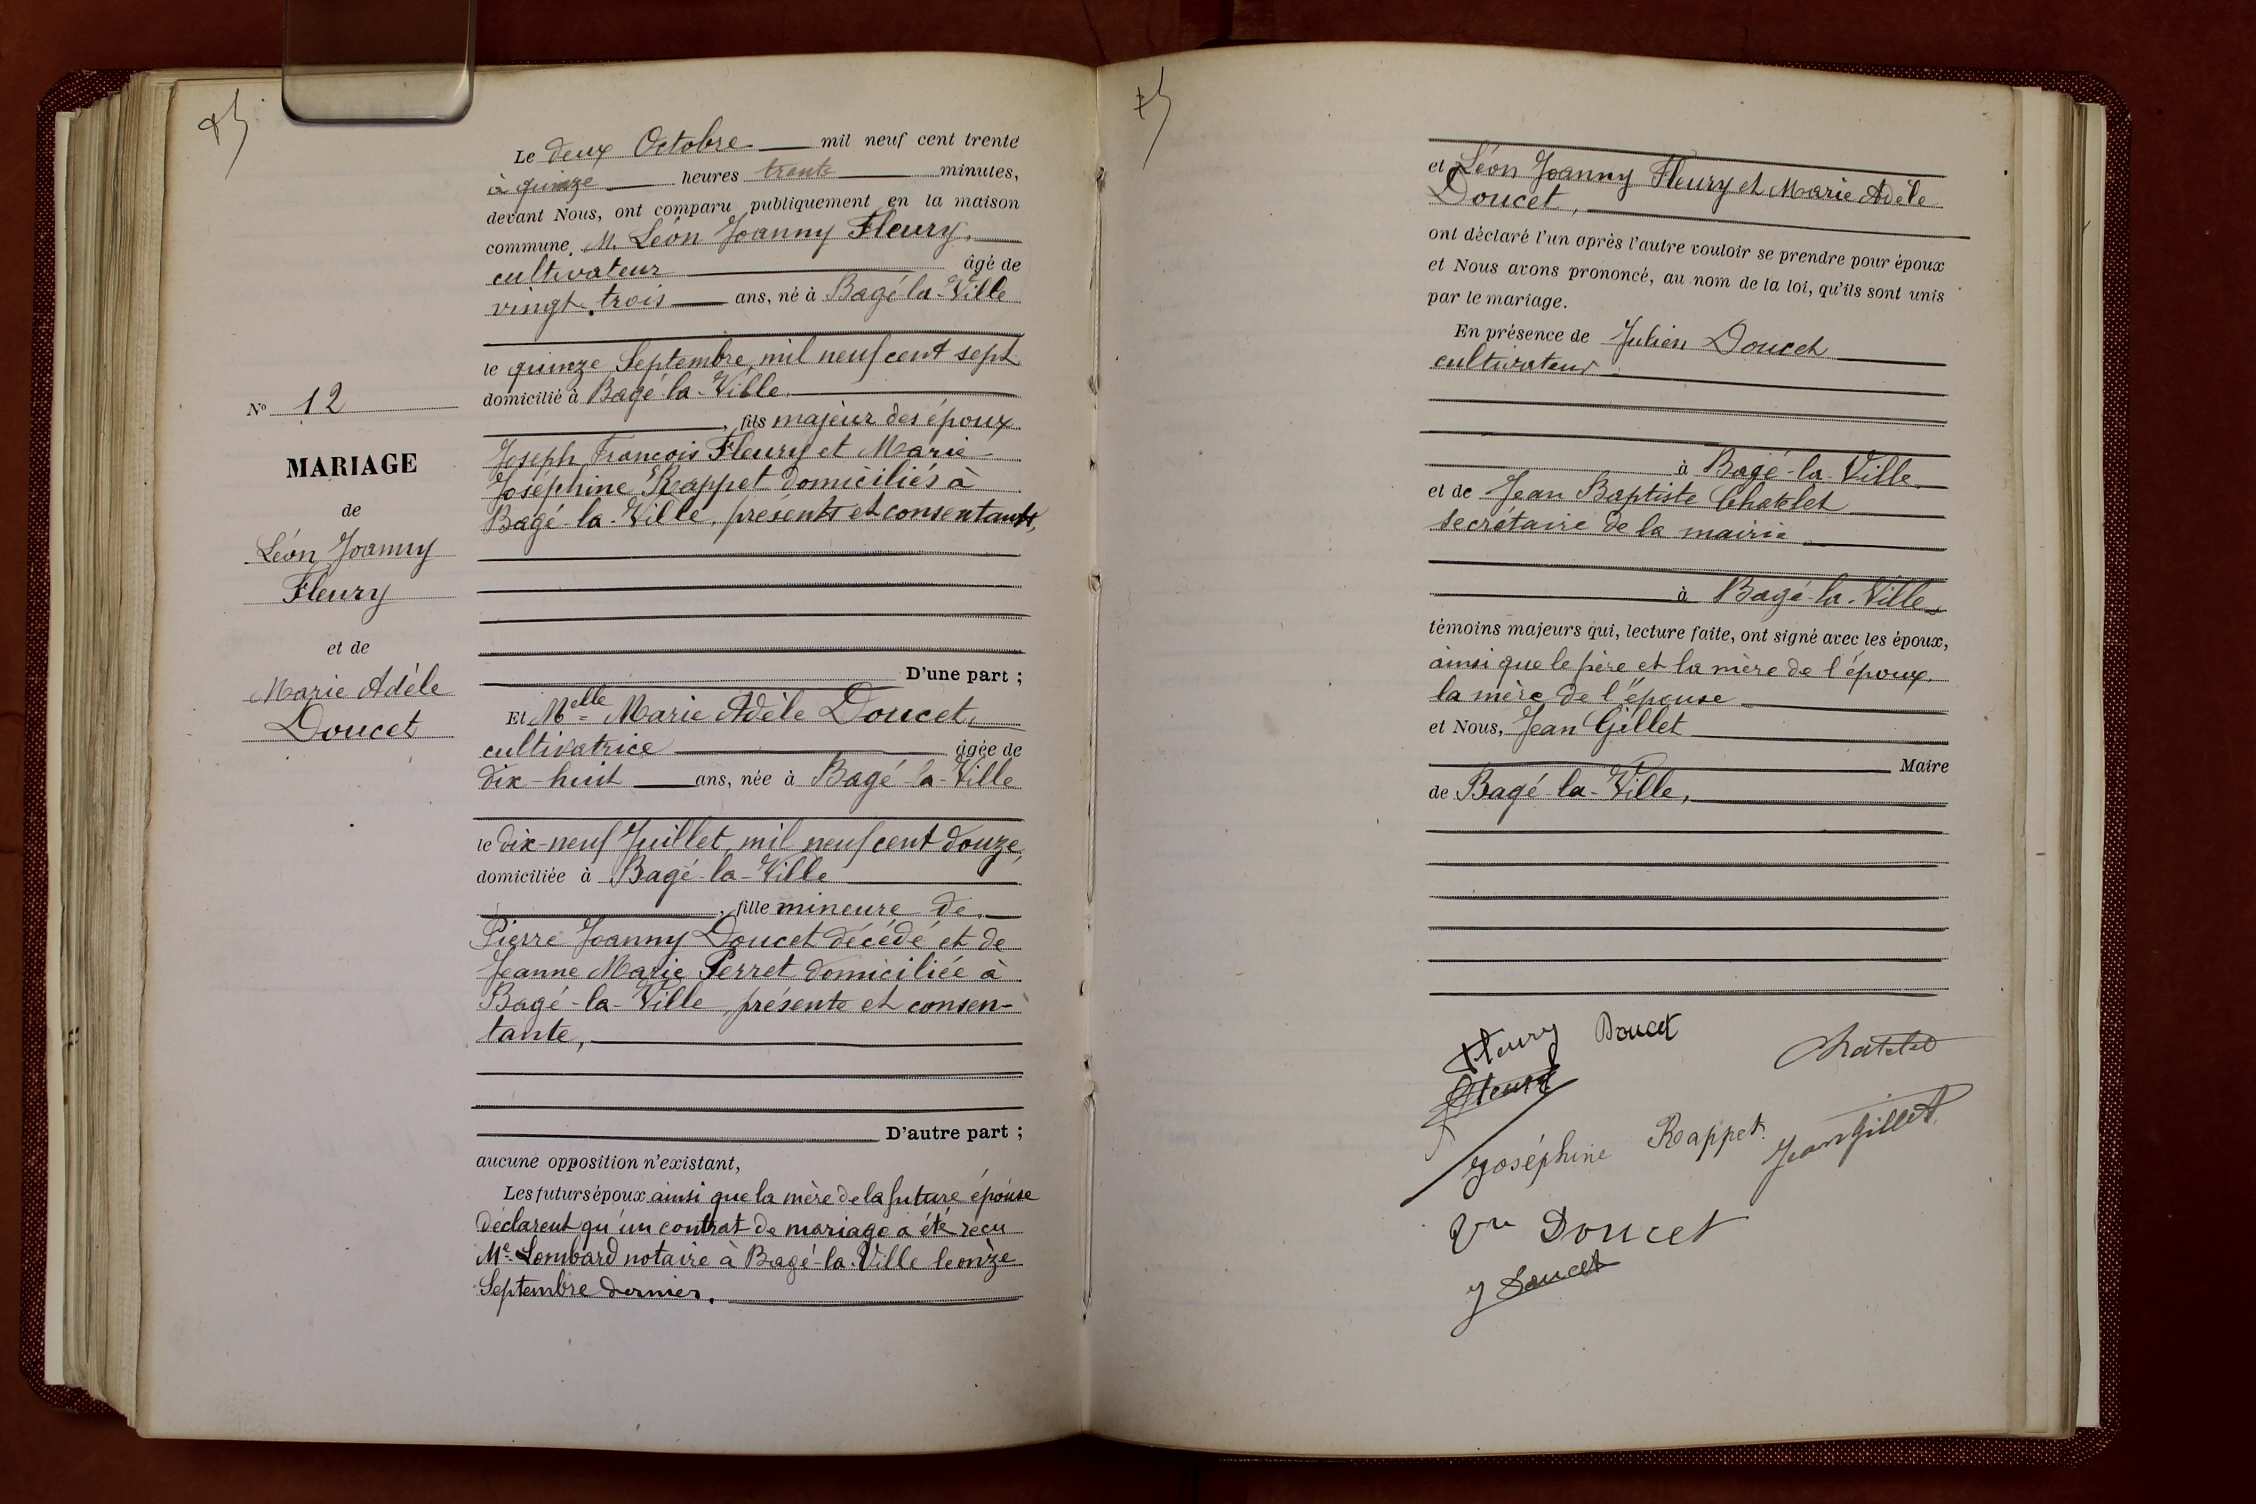 N° 12
MARIAGE
de
Léon Joanny
Fleury
et de
Marie Adèle
Doucet
Le deux Octobre mil neuf cent trente
à quinze heures trente minutes,
devant Nous, ont comparu publiquement en la maison
commune M. Léon Joanny Fleury,
cultivateur âgé de
vingt-trois ans, né à Bagé-la-Ville
le quinze Septembre mil neuf cent sept
domicilié à Bagé-la-Ville,
, fils majeur des époux
Joseph François Fleury et Marie
Joséphine Rappet domiciliés à
Bagé-la-Ville, présents et consentants,
D'une part ;
Et Melle Marie Adèle Doucet,
cultivatrice âgée de
dix-huit ans, née à Bagé-la-Ville
le dix-neuf Juillet, mil neuf cent douze,
domiciliée à Bagé-la-Ville
, fille mineure de
Pierre Joanny Doucet décédé et de
Jeanne Marie Perret domiciliée à
Bagé-la-Ville, présente et consen-
tante,
D'autre part ;
aucune opposition n'existant,
Les futurs époux ainsi que la mère de la future épouse
déclarent qu'un contrat de mariage a été reçu
Me Lombard notaire à Bagé-la-Ville le onze
Septembre dernier.
et Léon Joanny Fleury et Marie Adèle
Doucet,
ont déclaré l'un après l'autre vouloir se prendre pour époux
et Nous avons prononcé, au nom de la loi, qu'ils sont unis
par le mariage.
En présence de Julien Doucet
cultivateur
à Bagé-la-Ville
et de Jean Baptiste Chatelet
secrétaire de la mairie
à Bagé-la-Ville
témoins majeurs qui, lecture faite, ont signé avec les époux,
ainsi que le père et la mère de l'époux,
la mère de l'épouse
et Nous, Jean Gillet
Maire
de Bagé-la-Ville,
Fleury Doucet
Chatelet
Fleury
Joséphine Rappet
Jean Gillet
Vve Doucet
J Doucet